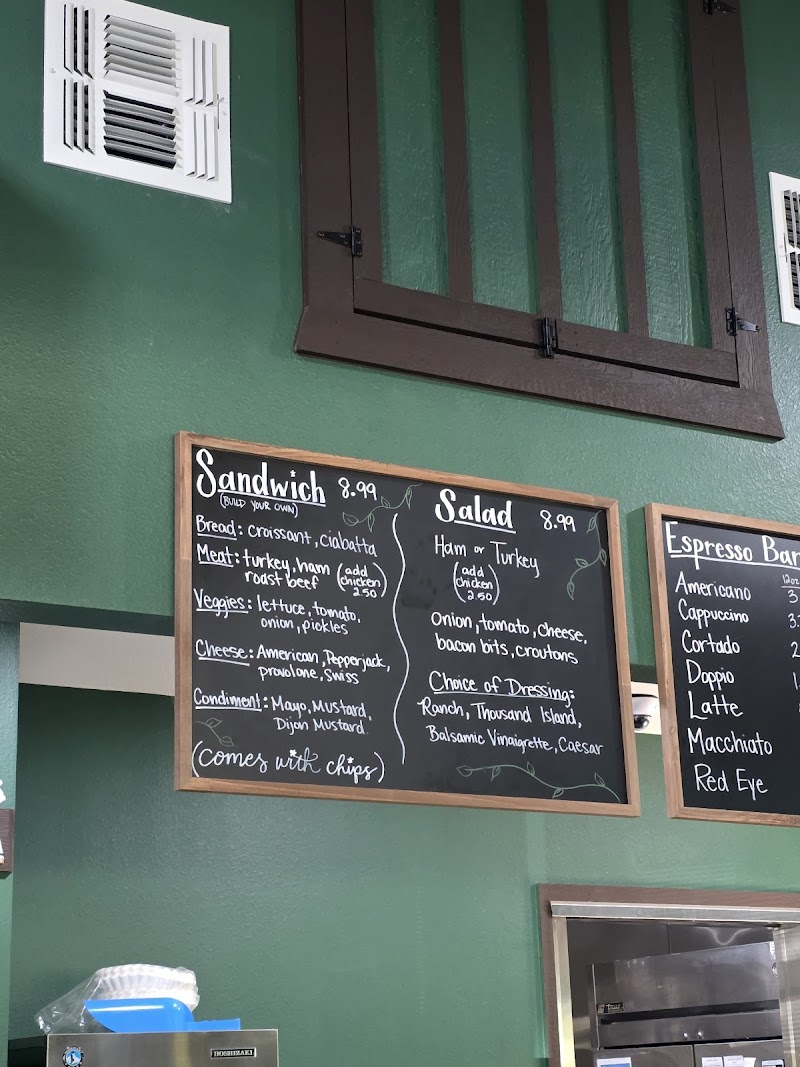 Sandwich 8.99
(BUILD YOUR OWN)
Bread: croissant, ciabatta
Meat: turkey, ham
roast beef
(add
chicken
2.50)
Veggies: lettuce, tomato,
onion, pickles
Cheese: American, Pepperjack,
provolone, Swiss
Condiment: Mayo, Mustard,
Dijon Mustard
(comes with chips)
Salad 8.99
Ham or Turkey
(add
chicken
2.50)
Onion, tomato, cheese,
bacon bits, croutons
Choice of Dressing:
Ranch, Thousand Island,
Balsamic Vinaigrette, Caesar
Espresso Bar
12oz
Americano 3
Cappuccino 3
Cortado 2
Doppio 1
Latte
Macchiato
Red Eye
HOSHIZAKI